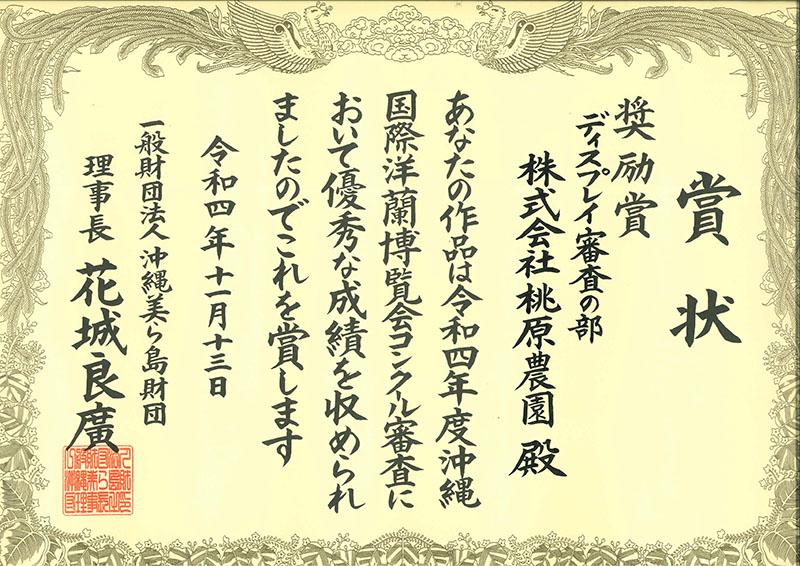 賞状
奨励賞
ディスプレイ審査の部
株式会社桃原農園 殿
あなたの作品は令和四年度沖縄
国際洋蘭博覧会コンクール審査に
おいて優秀な成績を収められ
ましたのでこれを賞します
令和四年十一月十三日
一般財団法人 沖縄美ら島財団
理事長 花城良廣